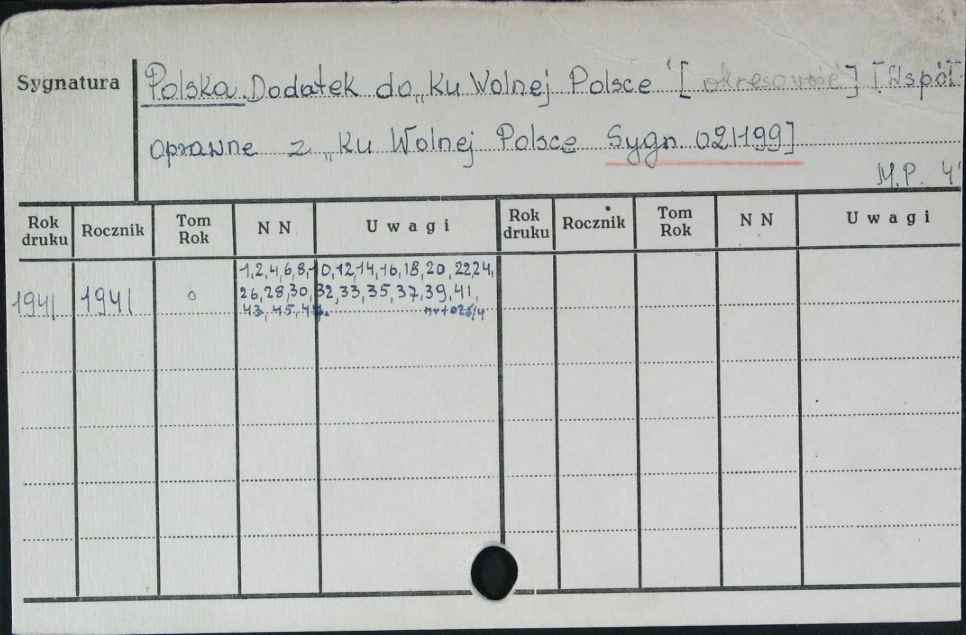 Sygnatura
Polska. Dodatek do „Ku Wolnej Polsce" [okresowość] [Współ-
oprawne z „Ku Wolnej Polsce Sygn 021199]
M.P. 4°
Rok druku Rocznik Tom Rok N N Uwagi Rok druku Rocznik Tom Rok N N Uwagi
1941 1941 o 1,2,4,6,8,10,12,14,16,18,20,22,24,
26,28,30,32,33,35,37,39,41,
43,45,47.